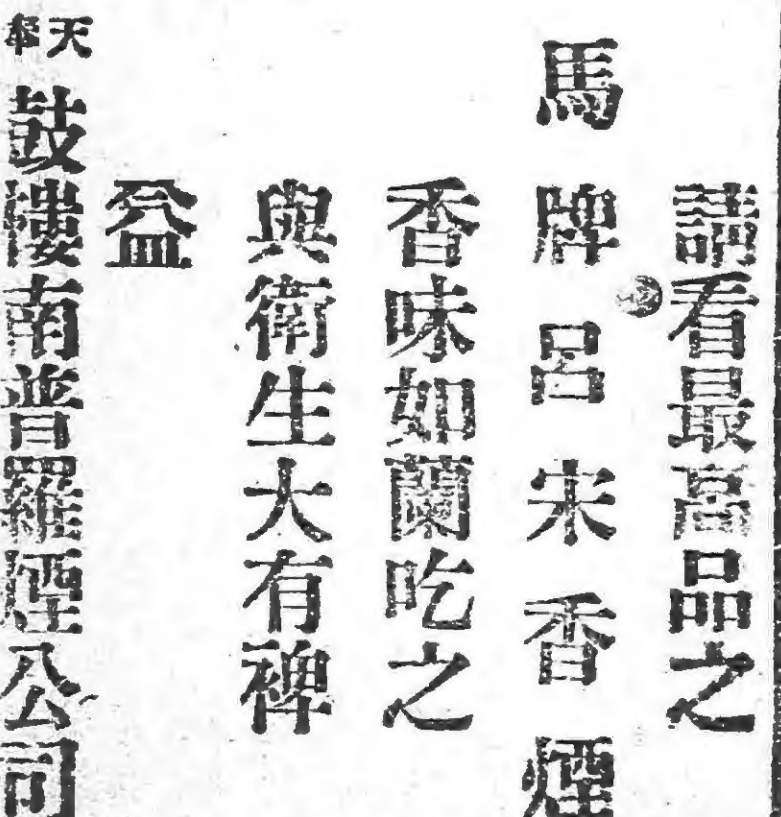 請看最高品之
馬牌呂宋香煙
香味如蘭吃之
與衛生大有裨
益
奉天
鼓樓南普羅煙公司